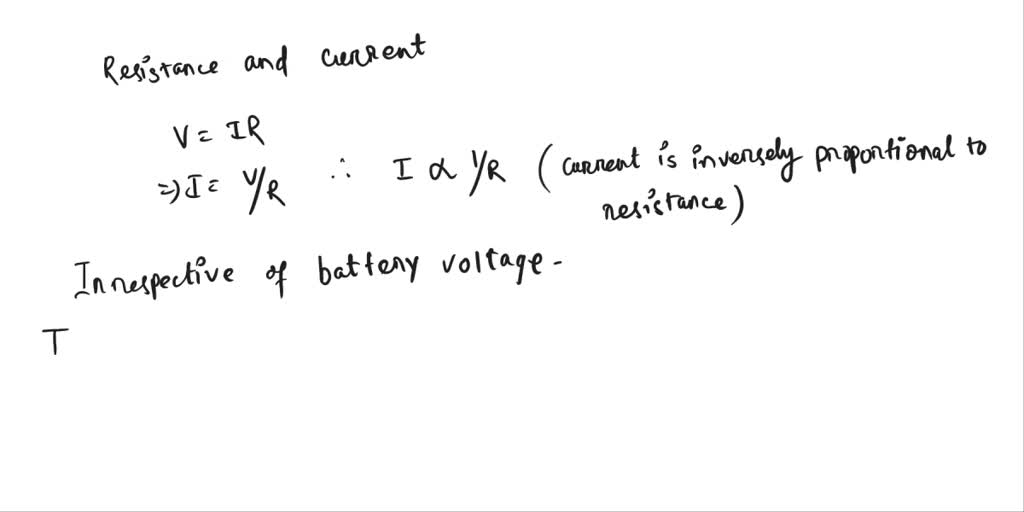 Resistance and current
V = IR
⇒ I = V/R ∴ I ∝ 1/R (current is inversely proportional to
resistance)
Irrespective of battery voltage -
T